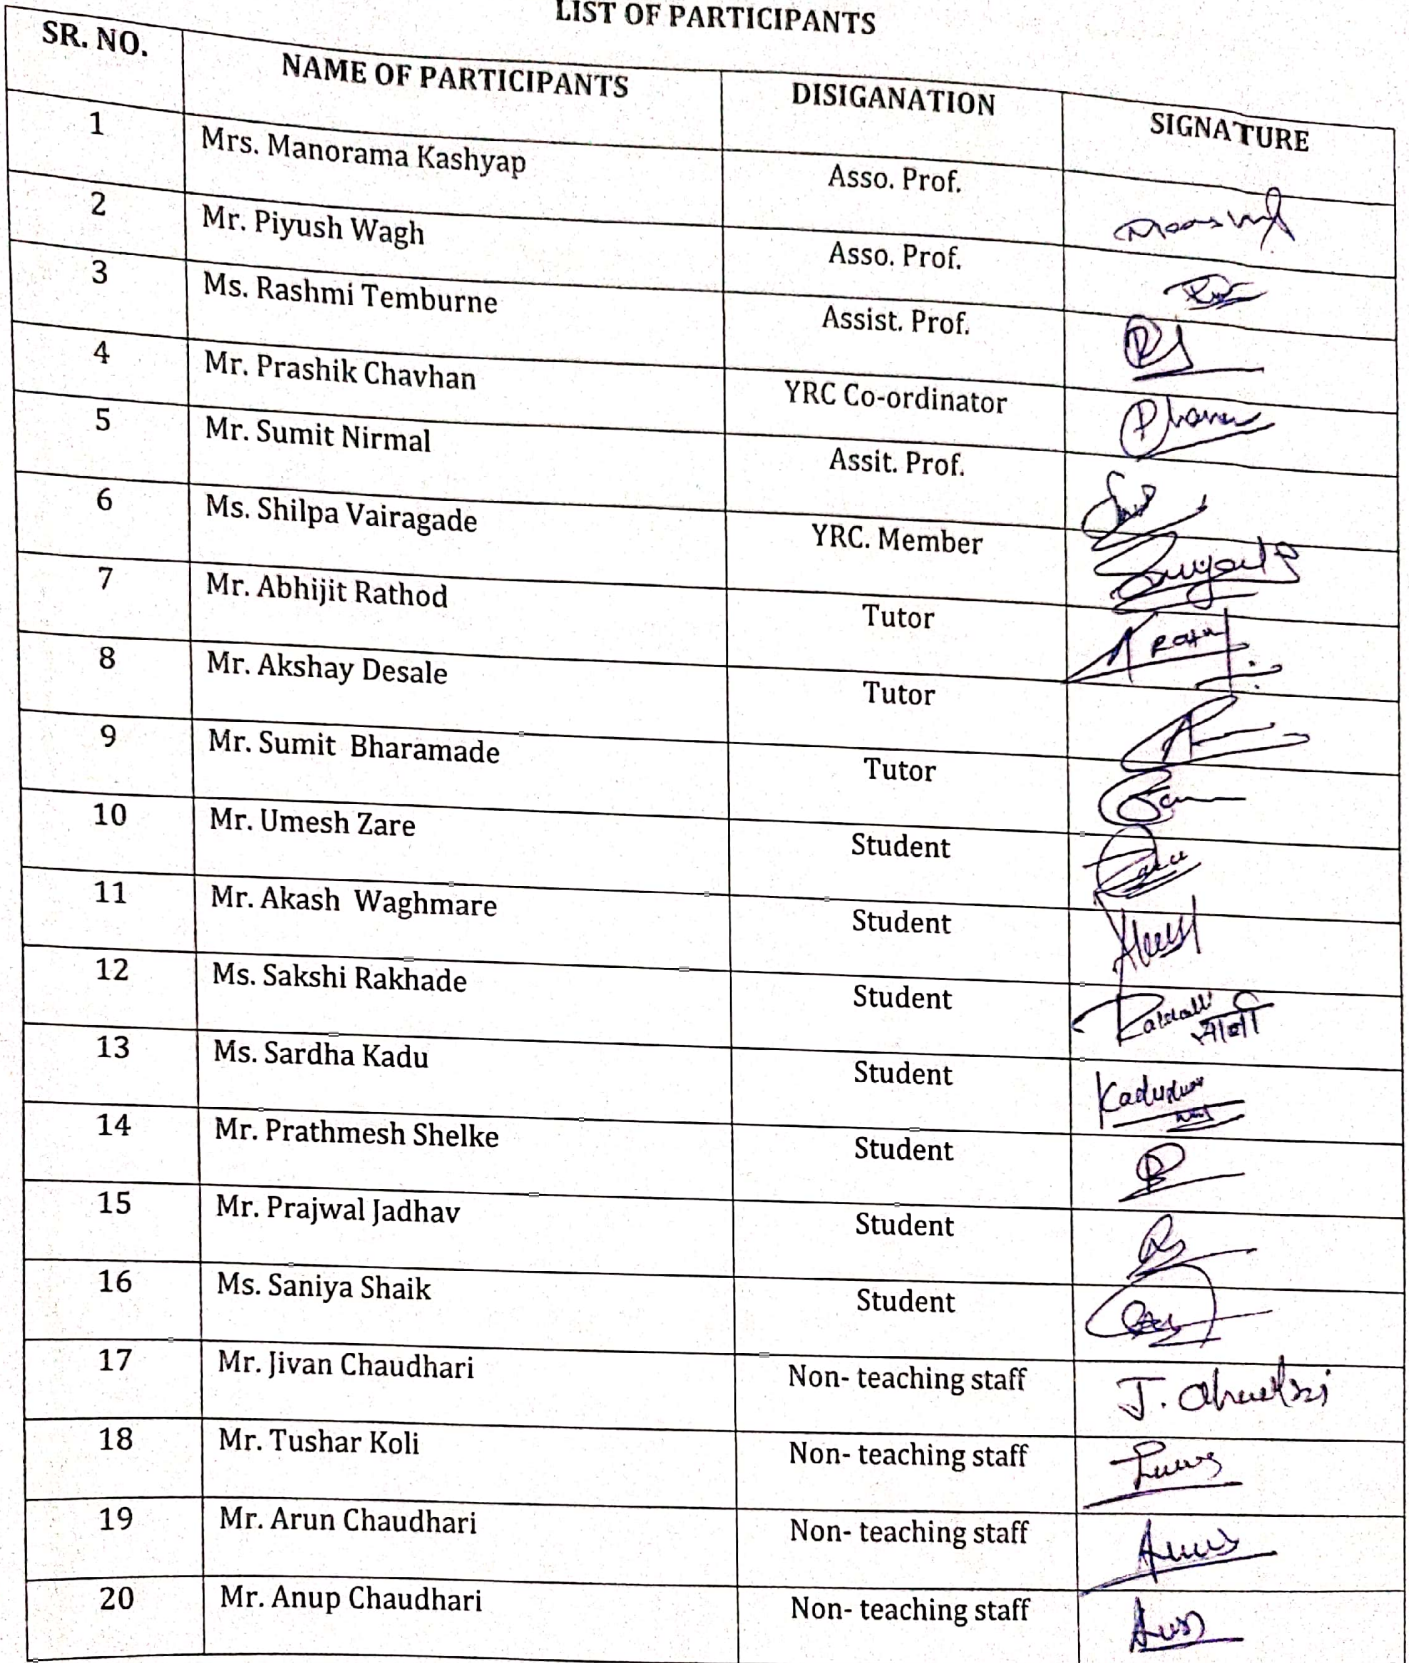 LIST OF PARTICIPANTS
SR. NO. NAME OF PARTICIPANTS DISIGANATION SIGNATURE
1 Mrs. Manorama Kashyap Asso. Prof.
2 Mr. Piyush Wagh Asso. Prof.
3 Ms. Rashmi Temburne Assist. Prof.
4 Mr. Prashik Chavhan YRC Co-ordinator
5 Mr. Sumit Nirmal Assit. Prof.
6 Ms. Shilpa Vairagade YRC. Member
7 Mr. Abhijit Rathod Tutor
8 Mr. Akshay Desale Tutor
9 Mr. Sumit Bharamade Tutor
10 Mr. Umesh Zare Student
11 Mr. Akash Waghmare Student
12 Ms. Sakshi Rakhade Student
13 Ms. Sardha Kadu Student
14 Mr. Prathmesh Shelke Student
15 Mr. Prajwal Jadhav Student
16 Ms. Saniya Shaik Student
17 Mr. Jivan Chaudhari Non- teaching staff J.
18 Mr. Tushar Koli Non- teaching staff
19 Mr. Arun Chaudhari Non- teaching staff
20 Mr. Anup Chaudhari Non- teaching staff